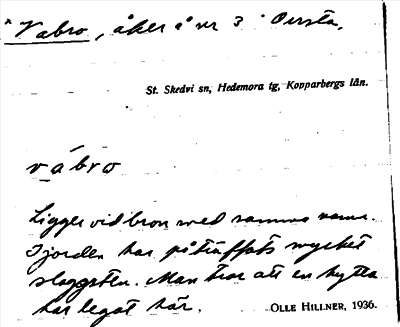 Vabro, åker å nr 3 i Oersta.
St. Skedvi sn, Hedemora tg, Kopparbergs län.
vábro
Ligger vid bron med samma namn.
I jorden har påträffats mycket
slaggsten. Man tror att en hytta
har legat här. OLLE HILLNER, 1936.